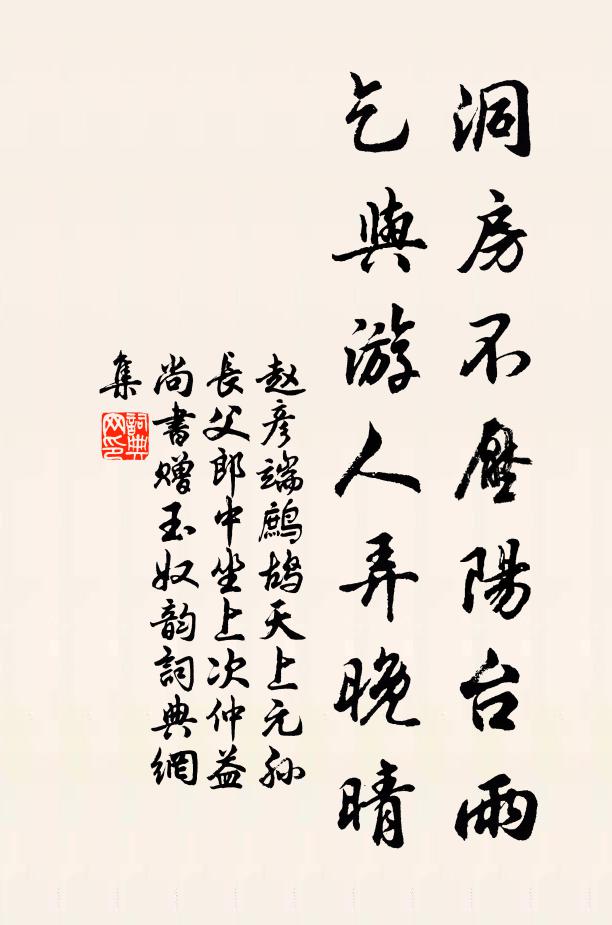 洞房不壓陽台雨
乞與游人弄晚晴
赵彦端鷓鴣天上元孙
長父郎中坐上次仲益
尚書赠玉奴韵詞典網
集
詞典
网印